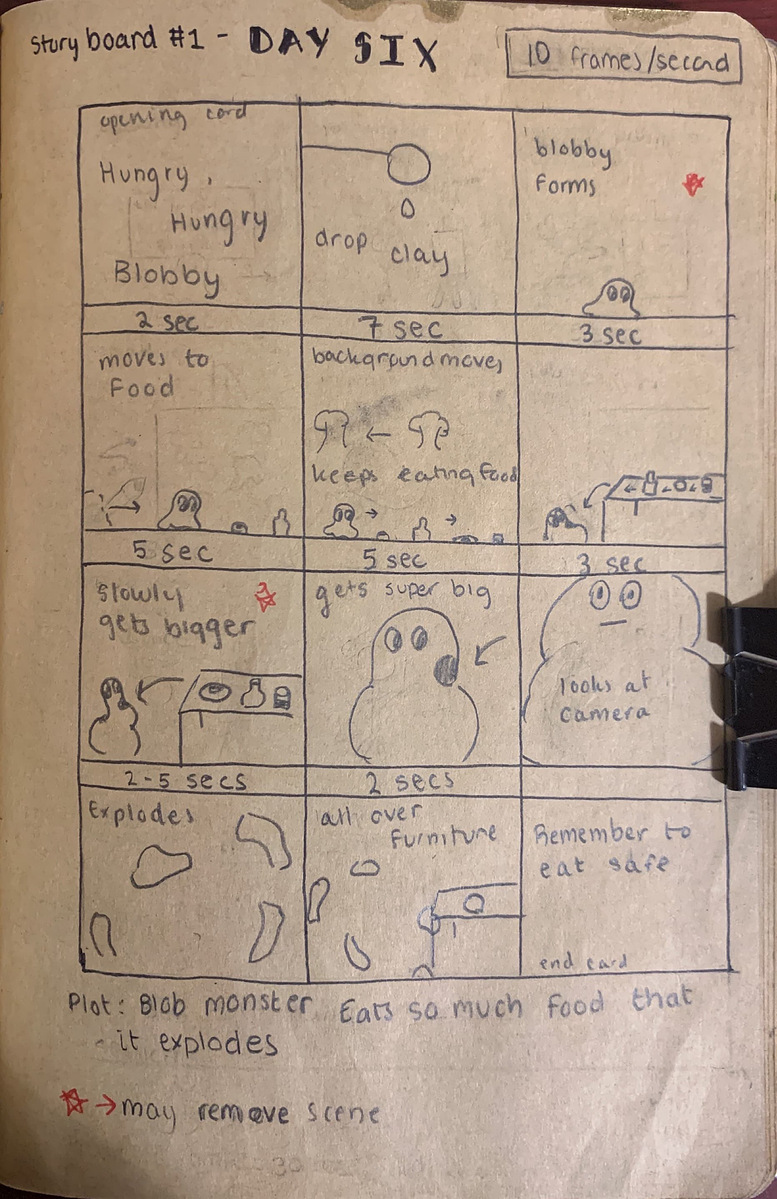 Story board #1 - DAY SIX
10 frames/second
opening card
Hungry,
Hungry
Blobby
2 sec
drop clay
7 sec
blobby
forms
3 sec
moves to
Food
5 sec
background moves
keeps eating food
5 sec
3 sec
slowly
gets bigger
2-5 secs
gets super big
2 secs
looks at
camera
Explodes
all over
Furniture
Remember to
eat safe
end card
Plot: Blob monster Eats so much food that
- it explodes
→ may remove scene